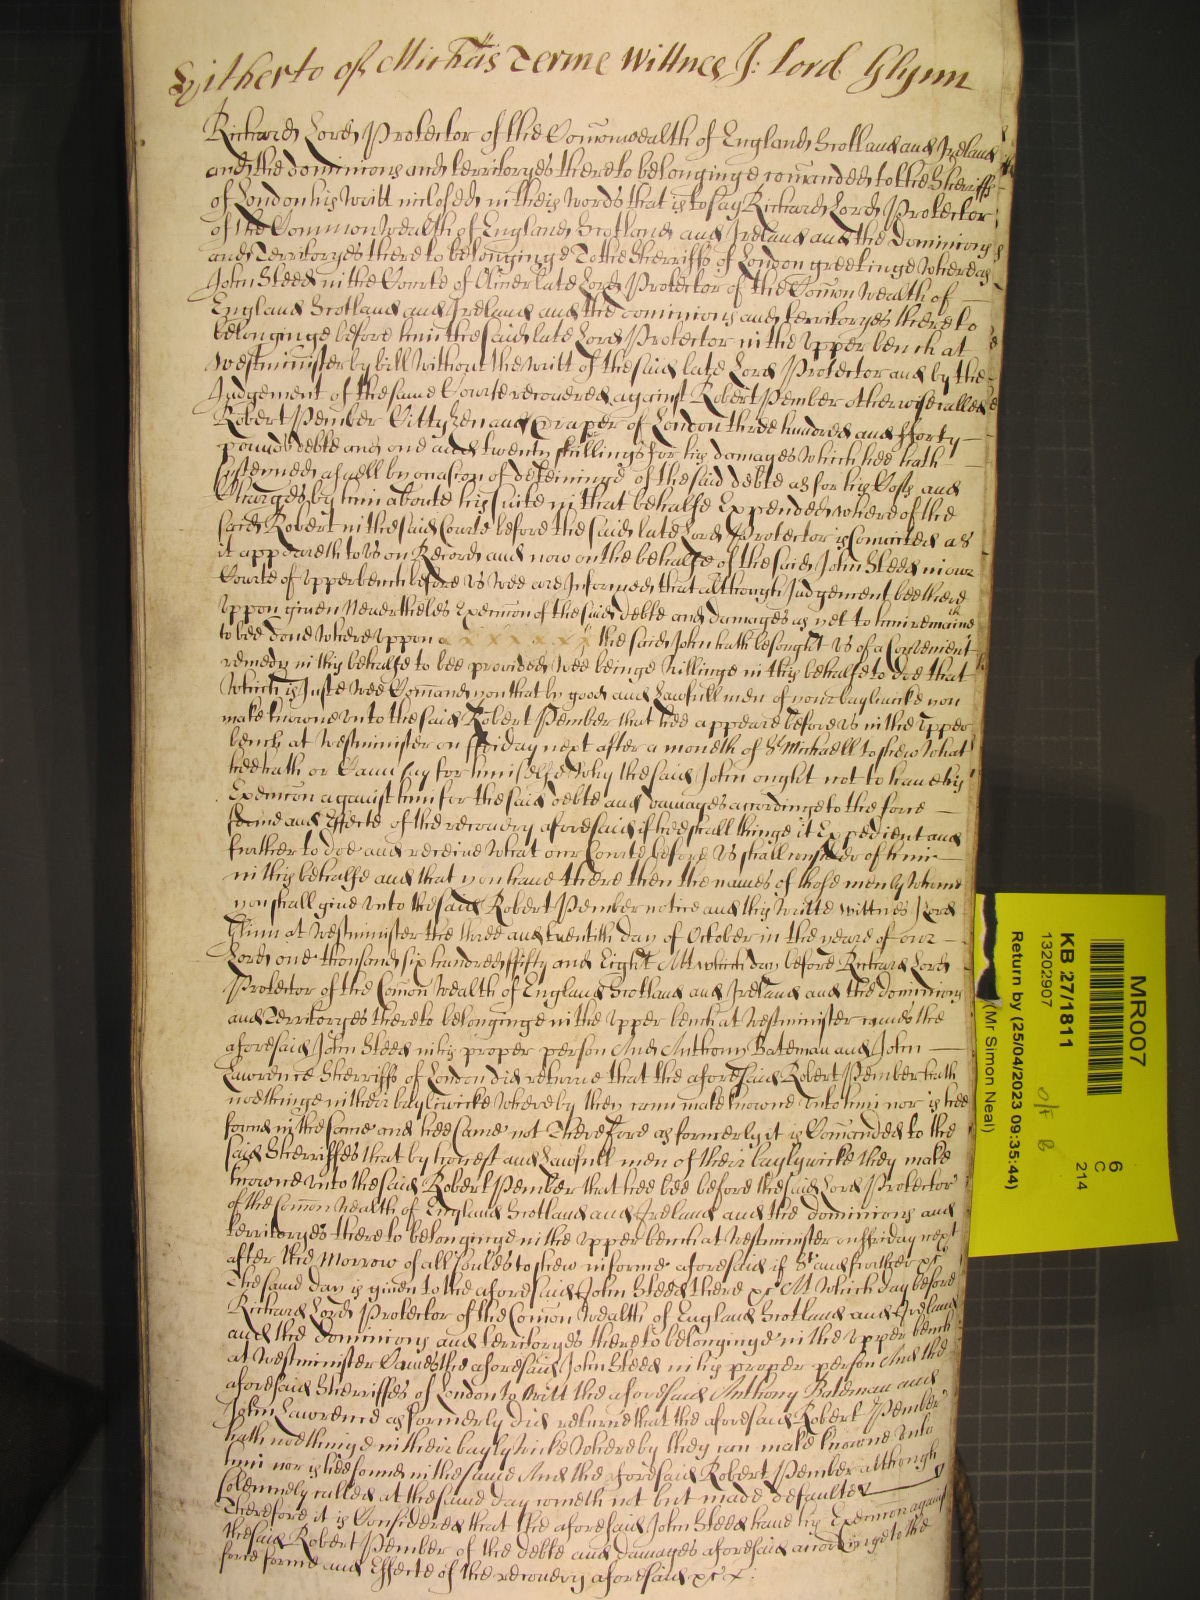 Hitherto of Mich'as Terme Wittnes J: Lord Glynn
Richard Lord Protector of the Com̄onwealth of England Scotland and Ireland
and the dominions and territoryes thereto belonginge com̄anded to the Sherriffs
of London his Writt inclosed in theis words that is to say Richard Lord Protector
of the Common Wealth of England Scotland and Ireland and the Dominions
and Territoryes thereto belonginge To the Sherriffs of London greetinge Whereas
John Steed in the Courte of Oliver late Lord Protector of the Com̄on Wealth of
England Scotland and Ireland and the dominions and territoryes thereto
belonginge before him the said late Lord Protector in the Upper bench at
Westminister by bill Without the Writt of the said late Lord Protector and by the
Judgement of the same Courte recovered against Robert Pember otherwise called
Robert Pember Cittyzen and Draper of London three hundred and fforty
pounds debte and one and twenty shillings for his damages Which hee hath
susteened aswell by occasion of deteininge of the said debte as for his Costs and
Charges by him aboute his suite in that behalfe Expended whereof the
said Robert in the said Courte before the said late Lord Protector is Convicted as
it appeareth to Us on Record and now on the behalfe of the said John Steed in our
Courte of upper bench before Us wee are Informed that although Judgement bee there
uppon given Neverthelés Execucōn of the said debte and damages as yet to him remaineth
to bee done Whereuppon the said John hath besought Us of a Convenient
remedy in this behalfe to bee provided Wee beinge Willinge in this behalfe to doe that
Which is Juste Wee Com̄and you that by good and Lawfull men of your bayliwicke you
make knowne unto the said Robert Pember that hee appeare before Us in the Upper
bench at Westminister on ffriday next after a moneth of St Michaell to shew What
hee hath or Cann say for himselfe Why the said John ought not to have his
Execucōn against him for the said debte and damages accordinge to the force
forme and Effecte of the recovery aforesaid if hee shall thinge it Expedient and
further to doe and receive What our Courte before Us shall consider of him
in this behalfe and that you have there then the names of those men by Whome
you shall give unto the said Robert Pember notice and this Writte Wittnes J Lord
Glinn at Westminister the three and twentith day of October in the yeare of our
Lord one thousand six hundred ffifty and Eight At which day before Richard Lord
Protector of the Com̄on Wealth of England Scotland and Ireland and the dominions
and Territoryes thereto belonginge in the upper bench at Westminister comes the
aforesaid John Steed in his proper person And Anthony Bateman and John
Lawrence Sherriffs of London did returne that the aforesaid Robert Pember hath
noethinge in their bayliwicke Whereby they cann make knowne unto him nor is hee
found in the same and hee Came not Therefore as formerly it is Com̄anded to the
said Sherriffes that by honest and Lawfull men of their baylywicke they make
knowne unto the said Robert Pember that hee bee before the said Lord Protector
of the Com̄on Wealth of England Scotland and Ireland and the dominions and
territoryes thereto belonginge in the upper bench at Westminister on ffriday next
after the Morrow of all Soules to shew in forme aforesaid if &c and further &c
The same day is given to the aforesaid John Steed there &c At Which day before
Richard Lord Protector of the Com̄on Wealth of England Scotland and Ireland
and the Dominions and territoryes thereto belonginge in the Upper bench
at Westminister Comes the aforesaid John Steed in his proper person And the
aforesaid Sherriffes of London to Witt the aforesaid Anthony Bateman and
John Lawrence as formerly did returne that the aforesaid Robert Pember
hath noethinge in their baylywicke Whereby they can make knowne unto
him nor is hee found in the same And the aforesaid Robert Pember although
solemnely called at the same day cometh not but made defaulte
Therefore it is Considered that the aforesaid John Steed have his Execucōn against
the said Robert Pember of the debte and damages aforesaid accordinge to the
force forme and Effecte of the recovery aforesaid &c
MR007
6
C
214
KB 27/1811
13202907
Return by (25/04/2023 09:35:44)
(Mr Simon Neal)